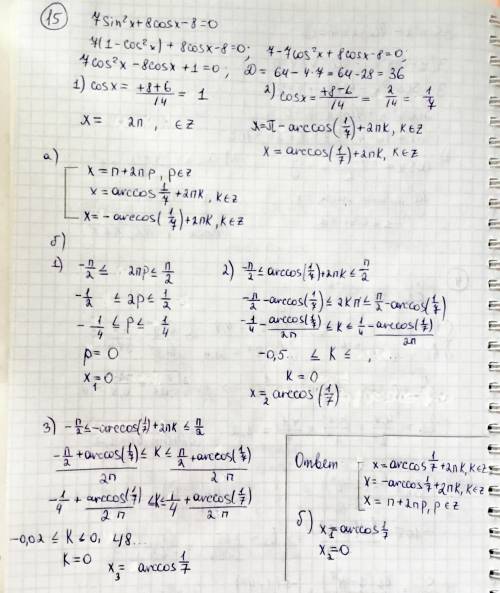 15
7sin²x+8cosx-8=0
7(1-cos²x)+8cosx-8=0; 7-7cos²x+8cosx-8=0;
7cos²x-8cosx+1=0; D=64-4·7=64-28=36
1) cosx=(+8+6)/14=1 2) cosx=(+8-6)/14=2/14=1/7
x= 2π, ∈Z x=π-arccos(1/7)+2πk, k∈Z
x=arccos(1/7)+2πk, k∈Z
а)
x=π+2πp, p∈Z
x=arccos 1/7+2πk, k∈Z
x=-arccos(1/7)+2πk, k∈Z
б)
1) -π/2≤ 2πp≤π/2 2) -π/2≤arccos(1/7)+2πk≤π/2
-1/2 ≤2p≤1/2 -π/2-arccos(1/7)≤2kπ≤π/2-arccos(1/7)
-1/4≤p≤1/4 -1/4-arccos(1/7)/2π≤k≤1/4-arccos(1/7)/2π
p=0 -0,5.. ≤k≤
x₁=0 k=0
x₂=arccos(1/7)
3) -π/2≤-arccos(1/7)+2πk≤π/2
(-π/2+arccos(1/7))/2π≤k≤(π/2+arccos(1/7))/2π
-1/4+arccos(1/7)/2π≤k≤1/4+arccos(1/7)/2π
-0,02≤k≤0,48...
k=0 x₃= arccos 1/7
Ответ
x=arccos 1/7+2πk, k∈Z
x=-arccos 1/7+2πk, k∈Z
x=π+2πp, p∈Z
б) x₁=arccos 1/7
x₂=0